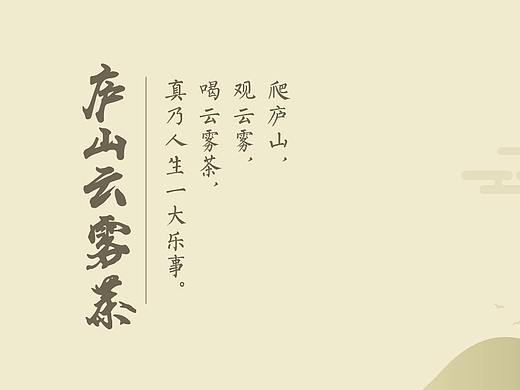 庐山云雾茶
爬庐山，
观云雾，
喝云雾茶，
真乃人生一大乐事。